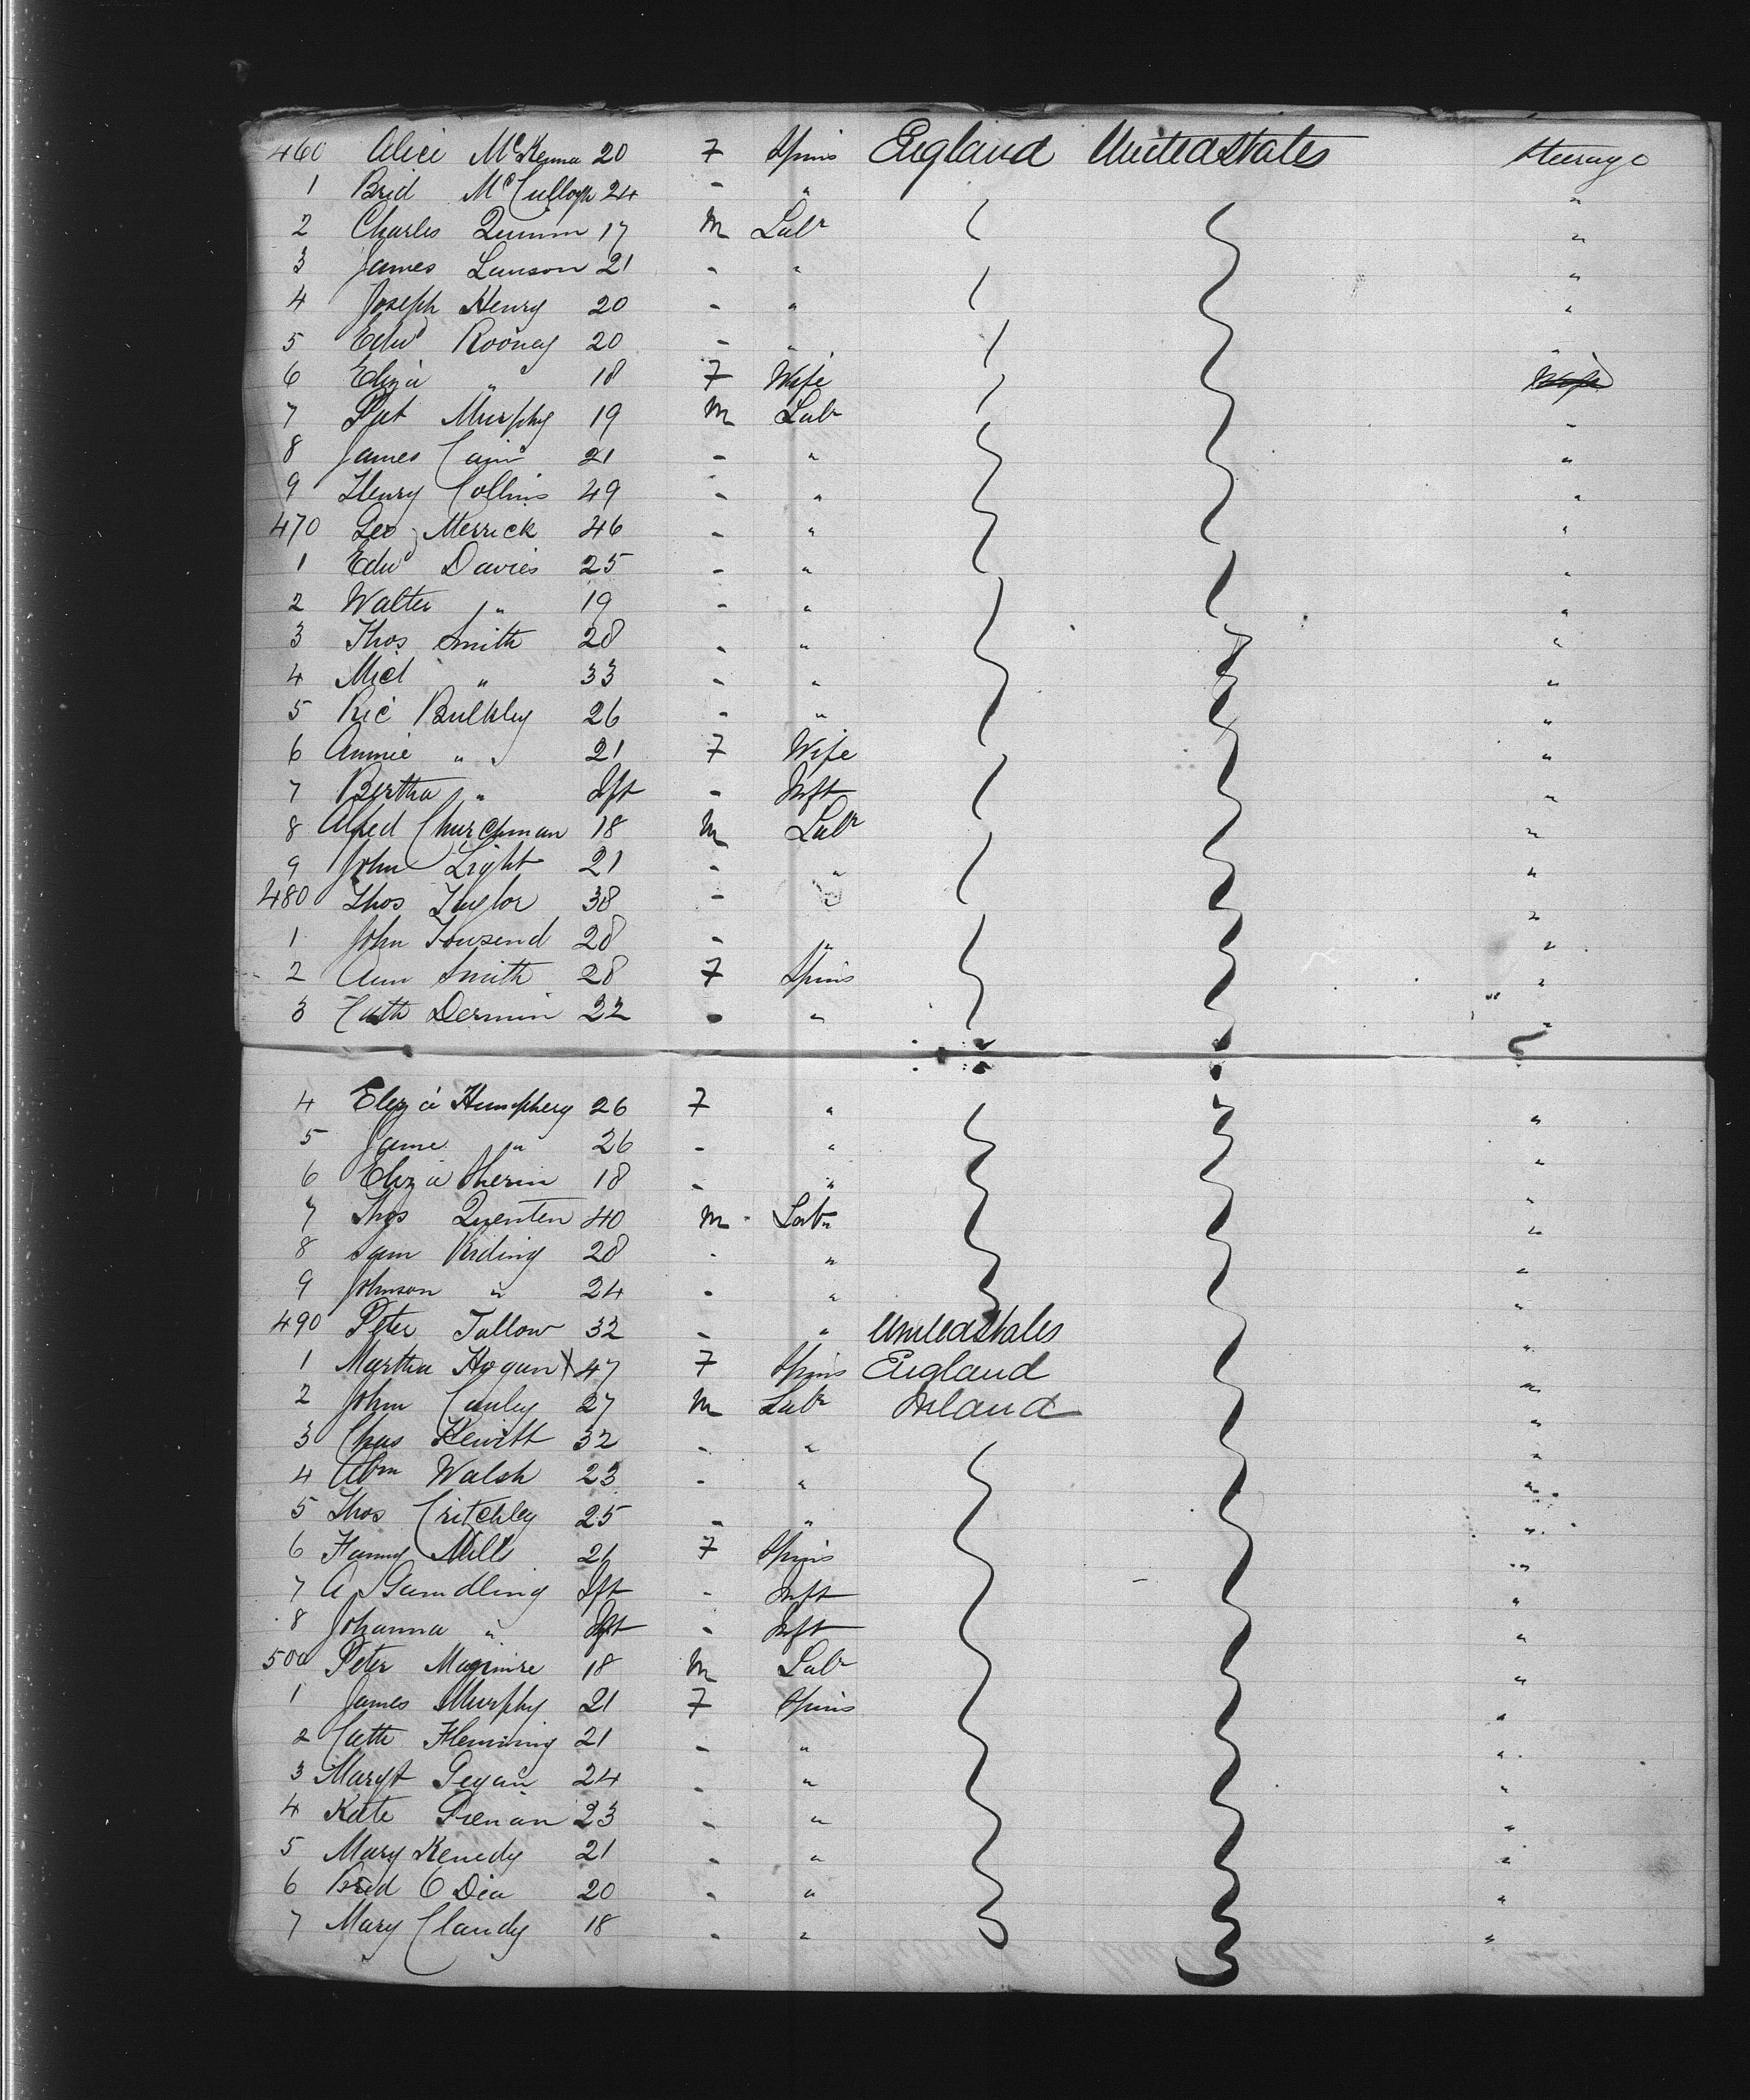 460 Alice McKenna 20 F Spins England United States Steerage
1 Brid McCullogh 24 - " "
2 Charles Quinn 17 M Labr "
3 James Lawson 21 - " "
4 Joseph Henry 20 - " "
5 Edwd Rooney 20 - " "
6 Eliza " 18 F Wife Wife
7 Pat Murphy 19 M Labr "
8 James Cain 21 - " "
9 Henry Collins 49 - " "
470 Geo Merrick 46 - " "
1 Edwd Davies 25 - " "
2 Walter " 19 - " "
3 Thos Smith 28 - " "
4 Micl " 33 - " "
5 Ric Bulkley 26 - " "
6 Annie " 21 F Wife "
7 Bertha " Ift - Inft "
8 Alfred Churchman 18 M Labr "
9 John Light 21 - " "
480 Thos Taylor 38 - " "
1 John Tousend 28 - " "
2 Ann Smith 28 F Spins "
3 Cath Dermin 22 - " "
4 Eliza Humphery 26 F " "
5 Jane " 26 - " "
6 Eliza Sherin 18 - " "
7 Thos Quenten 40 M Labr "
8 Sam Riding 28 - " "
9 Johnson " 24 - " "
490 Peter Tallow 32 - " United States "
1 Martha Hogan X 47 F Spins England "
2 John Canley 27 M Labr Irland "
3 Chas Hewitt 32 - " "
4 Abm Walsh 23 - " "
5 Thos Critchley 25 - " "
6 Fanny Mills 21 F Spins "
7 A Gamdling Ift - Inft "
8 Johanna " Ift - Inft "
500 Peter Maguire 18 M Labr "
1 James Murphy 21 F Spins "
2 Cath Flemming 21 - " "
3 Margt Gegan 24 - " "
4 Kate 23 - " "
5 Mary Kenedy 21 - " "
6 Brid O Dea 20 - " "
7 Mary Clandy 18 - " "